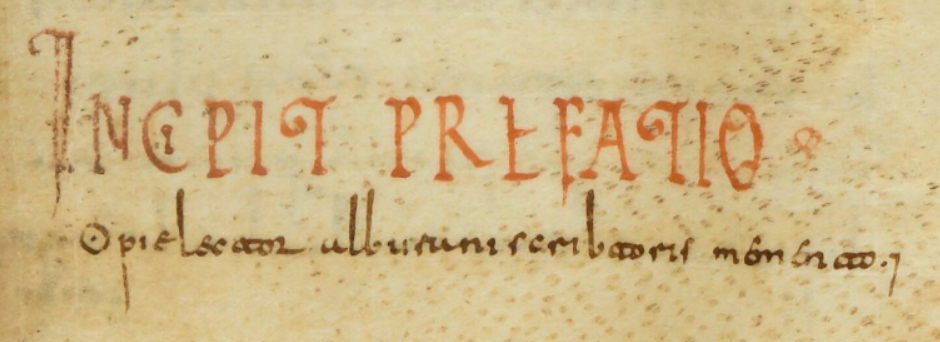 INCIPIT PREFATIO
O pie lector scribtoris memento